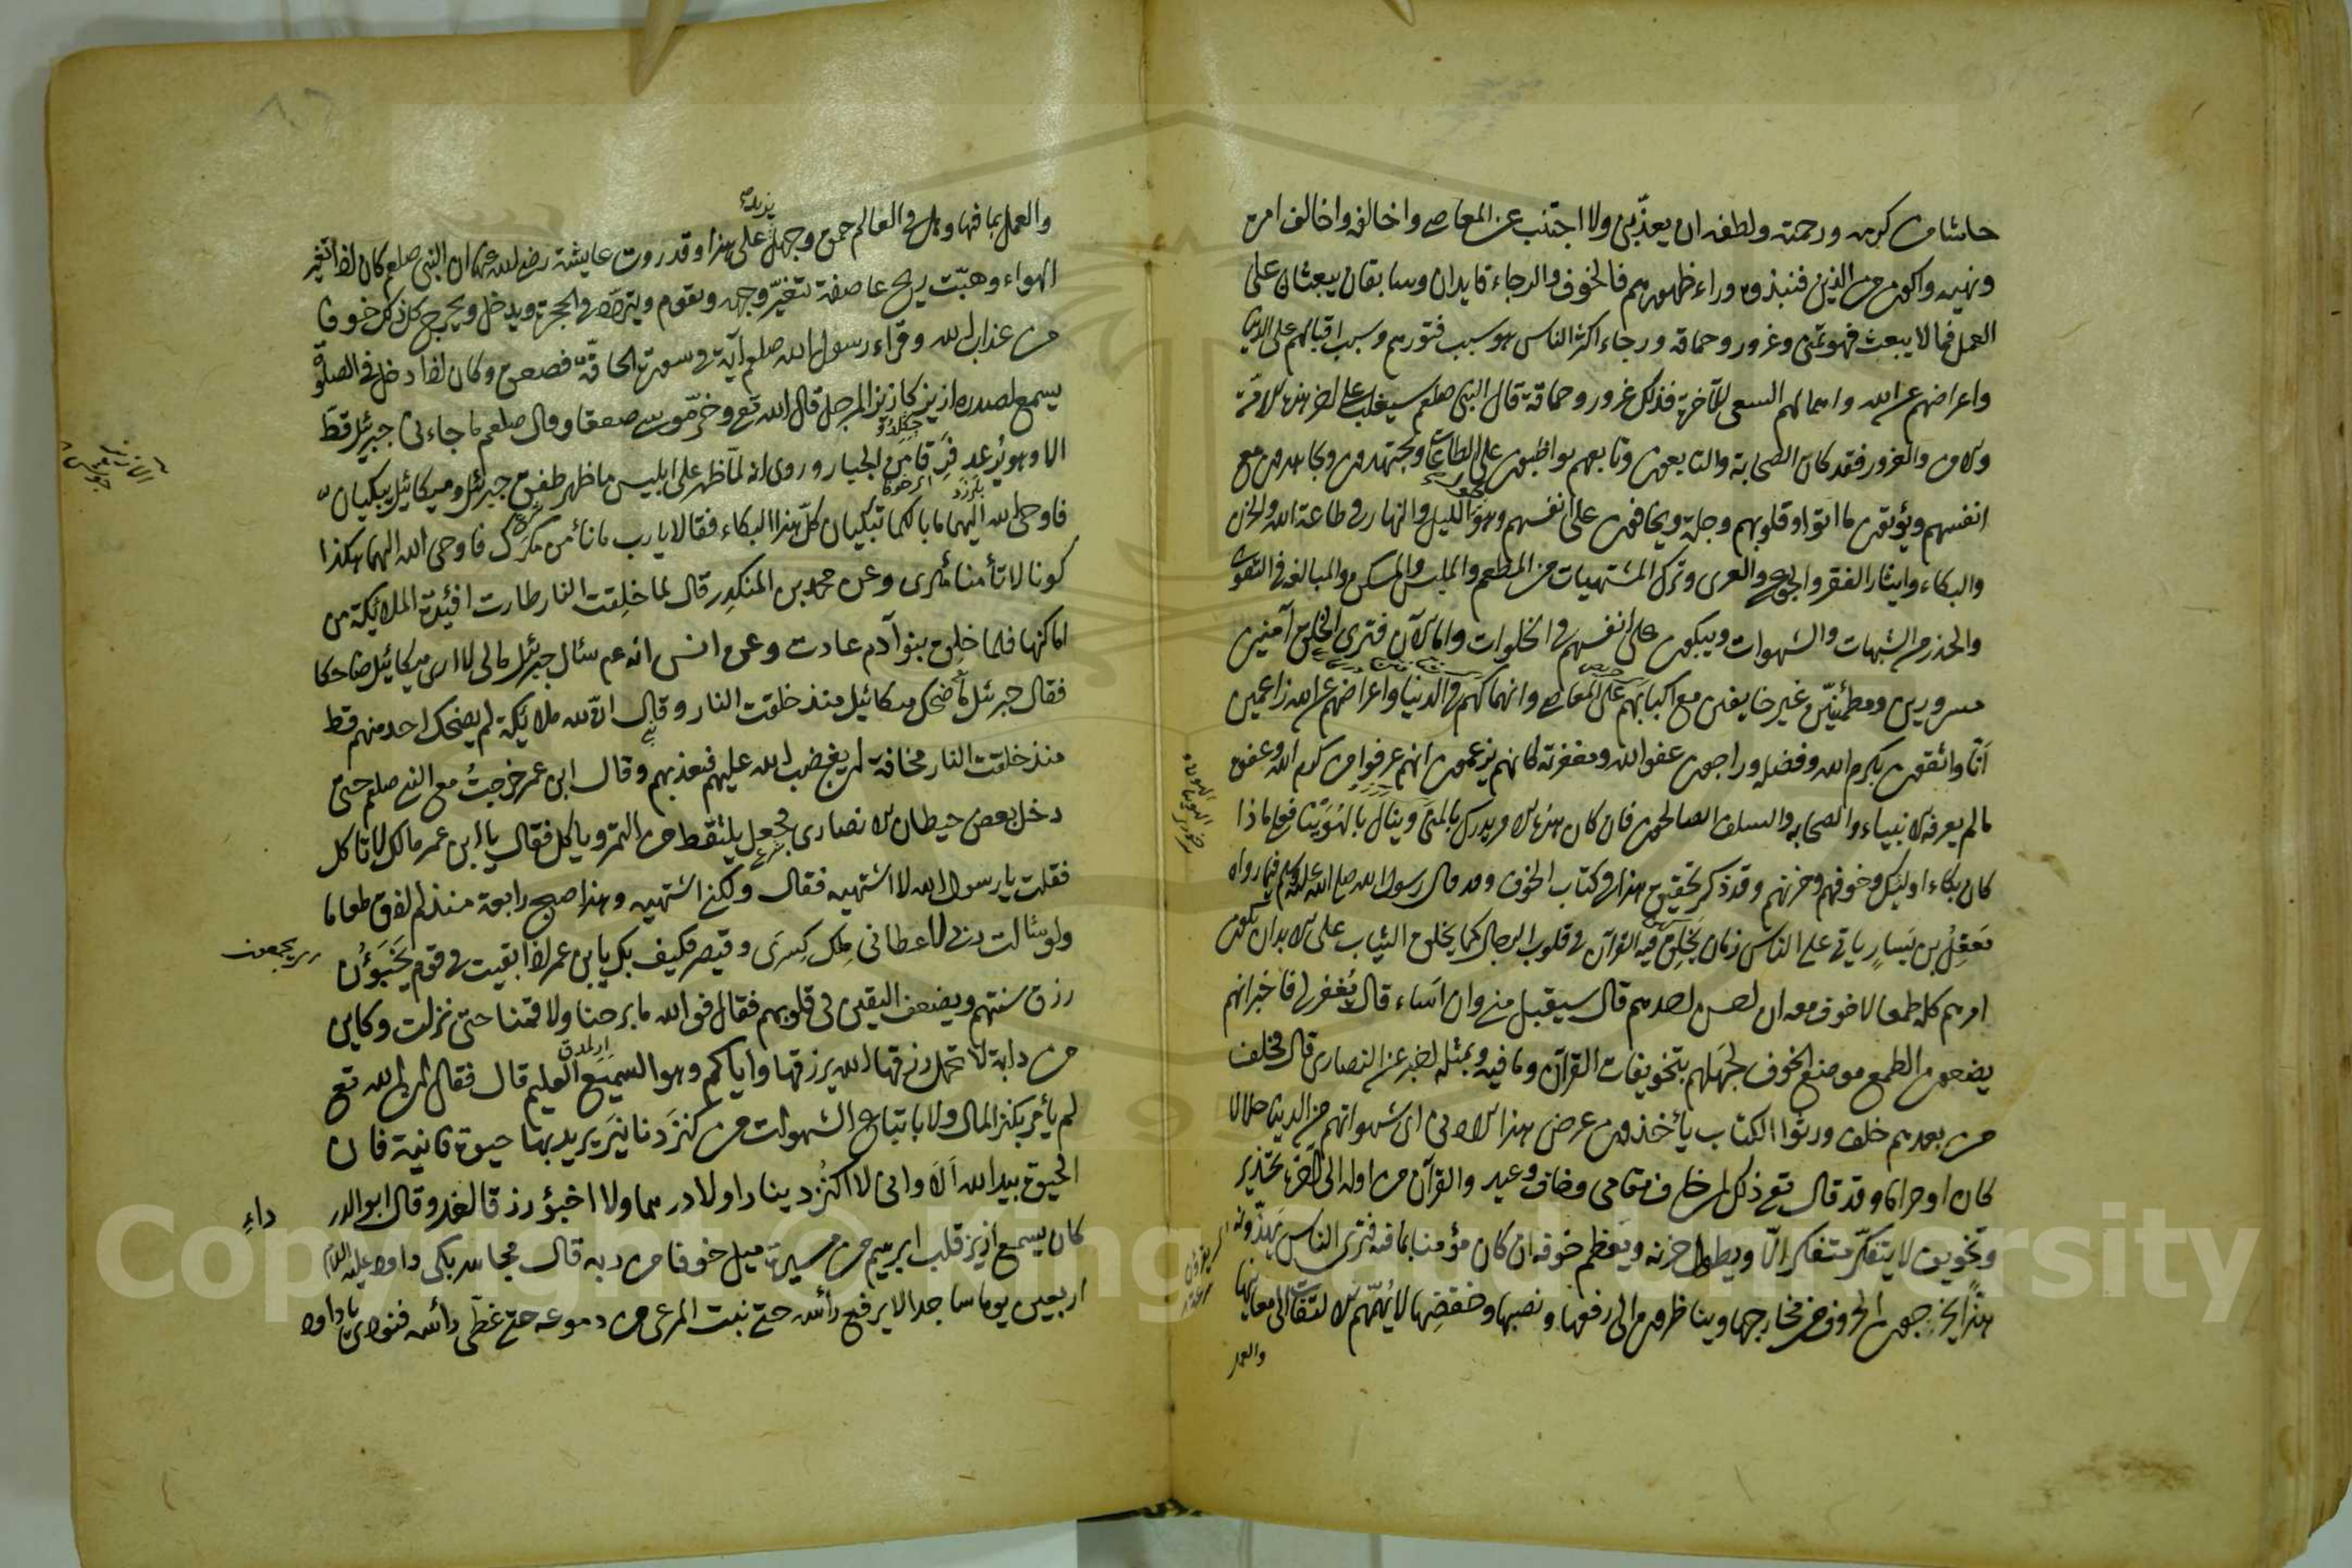 حاشا من كرمه ورحمته ولطفه ان يعذّبنى ولا اجتنب عن المعاصى واخالفه واخالف امره
ونهيه واكون من الذين فنبذوه وراء ظهورهم فالخوف والرجاء قايدان وسابقان يبعثان على
العمل فما لا يبعث فهو تمنى وغرور وحماقة ورجاء اكثر الناس هو سبب فتورهم وسبب اقبالهم على الدنيا
واعراضهم عن الله واهمالهم السعى للآخرة فذلك غرور وحماقة قال النبى صلعم سيغلب على آخر هذه الامّة
والغرور فقد كان الصّحابة والتابعون وتابعهم يواظبون على الطاعات ويجتهدون ويجاهدون مع
انفسهم ويؤتون ما اتوا وقلوبهم وجلة ويخافون على انفسهم وهو الليل والنهار فى طاعة الله والحزن
والبكاء وايثار الفقر والجوع والعرى وترك المشتهيات من المطعم والملبس والمسكن والمبالغة فى التقوى
والحذر من الشبهات والشهوات ويبكون على انفسهم فى الخلوات واما الآن فترى الخلق آمنين
مسرورين ومطمئنّين غير خايفين مع اكبابهم على المعاصى وانهماكهم فى الدنيا واعراضهم عن الله زاعمين
انّا واثقون بكرم الله وفضله وراجون عفو الله ومغفرته كانهم يزعمون انهم عرفوا من كرم الله وعفوه
ما لم يعرفه الانبياء والصحابة والسلف الصالحون فان كان هذا الامر يدرك بالمنى وينال بالهوينا فعلى ماذا
كان بكاء اولئك وخوفهم وحزنهم وقد ذكر تحقيق هذا فى كتاب الخوف وقد قال رسول الله صلى الله عليه وسلم فيما رواه
مَعقِلُ بن يَسارٍ يأتى على الناس زمان يَخلَق فيه القرآن فى قلوب الرجال كما يخلق الثياب على الابدان يكون
امرهم كله طمعا لا خوف معه ان احسن احدهم قال سيقبل منى وان اَساء قال يُغفر لى فاخبر انهم
يضعون الطمع موضع الخوف لجهلهم بتخويفات القرآن وما فيه وبمثله اخبر عن النصارى قال فخلف
من بعدهم خلف ورثوا الكتاب يأخذون عرض هذا الادنى اى شهواتهم من الدنيا حلالا
كان او حراما وقد قال تع ذلك لمن خاف مقامى وخاف وعيد والقرآن من اوله الى آخره تحذير
وتخويف لا يتفكّر متفكر الّا ويطول حزنه ويعظم خوفه ان كان مؤمنا بما فيه فترى الناس يَهذّونه
هذًّا يخرجون الحروف من مخارجها ويناظرون الى رفعها ونصبها وخفضها لا يُهمّهم الالتفات الى معانيها
والعمل
والعمل بما فيها وهل فى العالم حمق وجهل يزيد على هذا وقد روت عايشة رضى الله عنها ان النبى صلعم كان اذا تغيّر
الهواء وهبّت ريح عاصفة تتغيّر وجهه ويقوم ويتردّد فى الحجرة ويدخل ويخرج كل ذلك خوفا
من عذاب الله وقراء رسول الله صلعم آية فى سورة الحاقّة فصعق وكان اذا دخل فى الصلوة
يسمع لصدره ازيز كازيز المرجل قال الله تع وخرّ موسى صعقا وقال صلعم ما جاءنى جبرئيل قط
الا وهو يُرعد فَرَقا من الجبار وروى انه لمّا ظهر على ابليس ما ظهر طفق جبرئيل وميكائيل يبكيان
فاوحى الله اليهما ما بالكما تبكيان كلّ هذا البكاء فقالا يا رب ما نأمن مكرك فاوحى الله اليهما هكذا
كونا لا تأمنا مكرى وعن محمد بن المنكدِر قال لما خلِقت النار طارت افئدة الملائكة من
اماكنها فلما خلِق بنو آدم عادت وعن انس انه عم سئال جبرئيل مالى لا ارى ميكائيل ضاحكا
فقال جبرئيل ما ضحك ميكائيل منذ خلقت النار وقال انّ لله ملائكة لم يضحك احد منهم قط
منذ خلقت النار مخافة ان يغضب الله عليهم فيعذبهم وقال ابن عمر خرجتُ مع النبى صلعم حتى
دخل بعض حيطان الانصارى فجعل يلتقط من التمر ويأكل فقال يا ابن عمر مالك لا تأكل
فقلت يا رسول الله لا اشتهيه فقال ولكنى اشتهيه وهذا صبح رابعة منذ لم اذق طعاما
ولو سئالت ربى لاعطانى مِلك كِسرَى وقيصر فكيف بك يا بن عمر اذا ابقيت فى قوم يَخبَؤُن
رزق سنتهم ويضعف اليقين فى قلوبهم فقال فو الله ما برحنا ولا قمنا حتى نزلت وكاين
من دابة لا تحمل رزقها الله يرزقها واياكم وهو السميع العليم قال فقال ان الله تع
لم يأمر بكنز المال ولا باتباع الشهوات من كنز دنانيَر يريد بها حيوة فانية فان
الحيوة بيد الله اَلَا وانى لا اكنُز دينارا ولا درهما ولا اخبؤ رزقا لغد وقال ابو الدر
داءِ
كان يسمع ازيز قلب ابرهيم من مسيرة ميل خوفا من ربه قال مجاهد بكى داود عليه السلام
اربعين يوما ساجدا لا يرفع رأسه حتى نبت المرعى من دموعه حتى غطّى رأسه فنودى يا داود